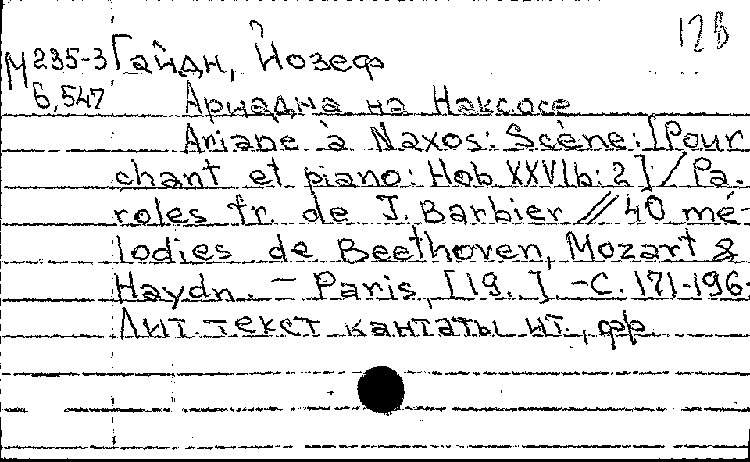 12в
М 235-3 Гайдн, Йозеф
6,547 Ариадна на Наксосе
Ariane à Naxos: Scène: [Pour
chant et piano: Hob XXVIb: 2] / Pa-
roles fr. de J. Barbier // 40 mé-
lodies de Beethoven, Mozart &
Haydn. – Paris, [19. ]. -С. 171-196.
Лит текст кантаты ит., фр.